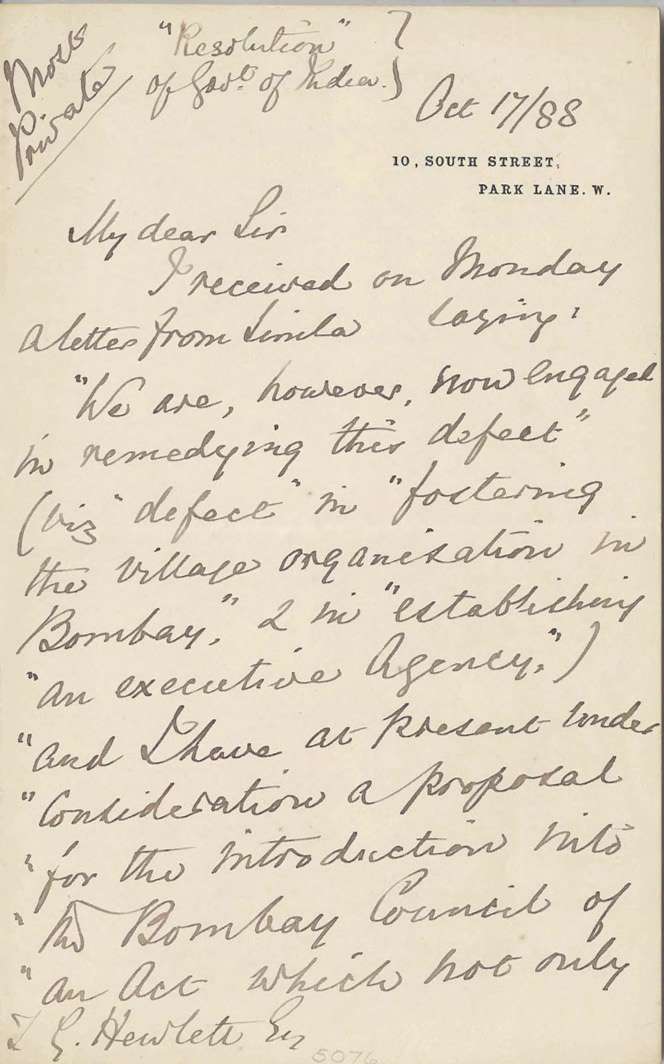 Most
Private
"Resolution"
of Govt. of India.
Oct 17/88
10, SOUTH STREET,
PARK LANE. W.
My dear Sir
I received on Monday
a letter from Simla saying:
"We are, however, now engaged
in remedying this defect"
(viz "defect" in "fostering
the village organisation in
Bombay," & in "establishing
"an executive Agency,")
"and I have at present under
"consideration a proposal
"for the introduction into
"the Bombay Council of
"an Act which not only
T G. Hewlett Esq
5076